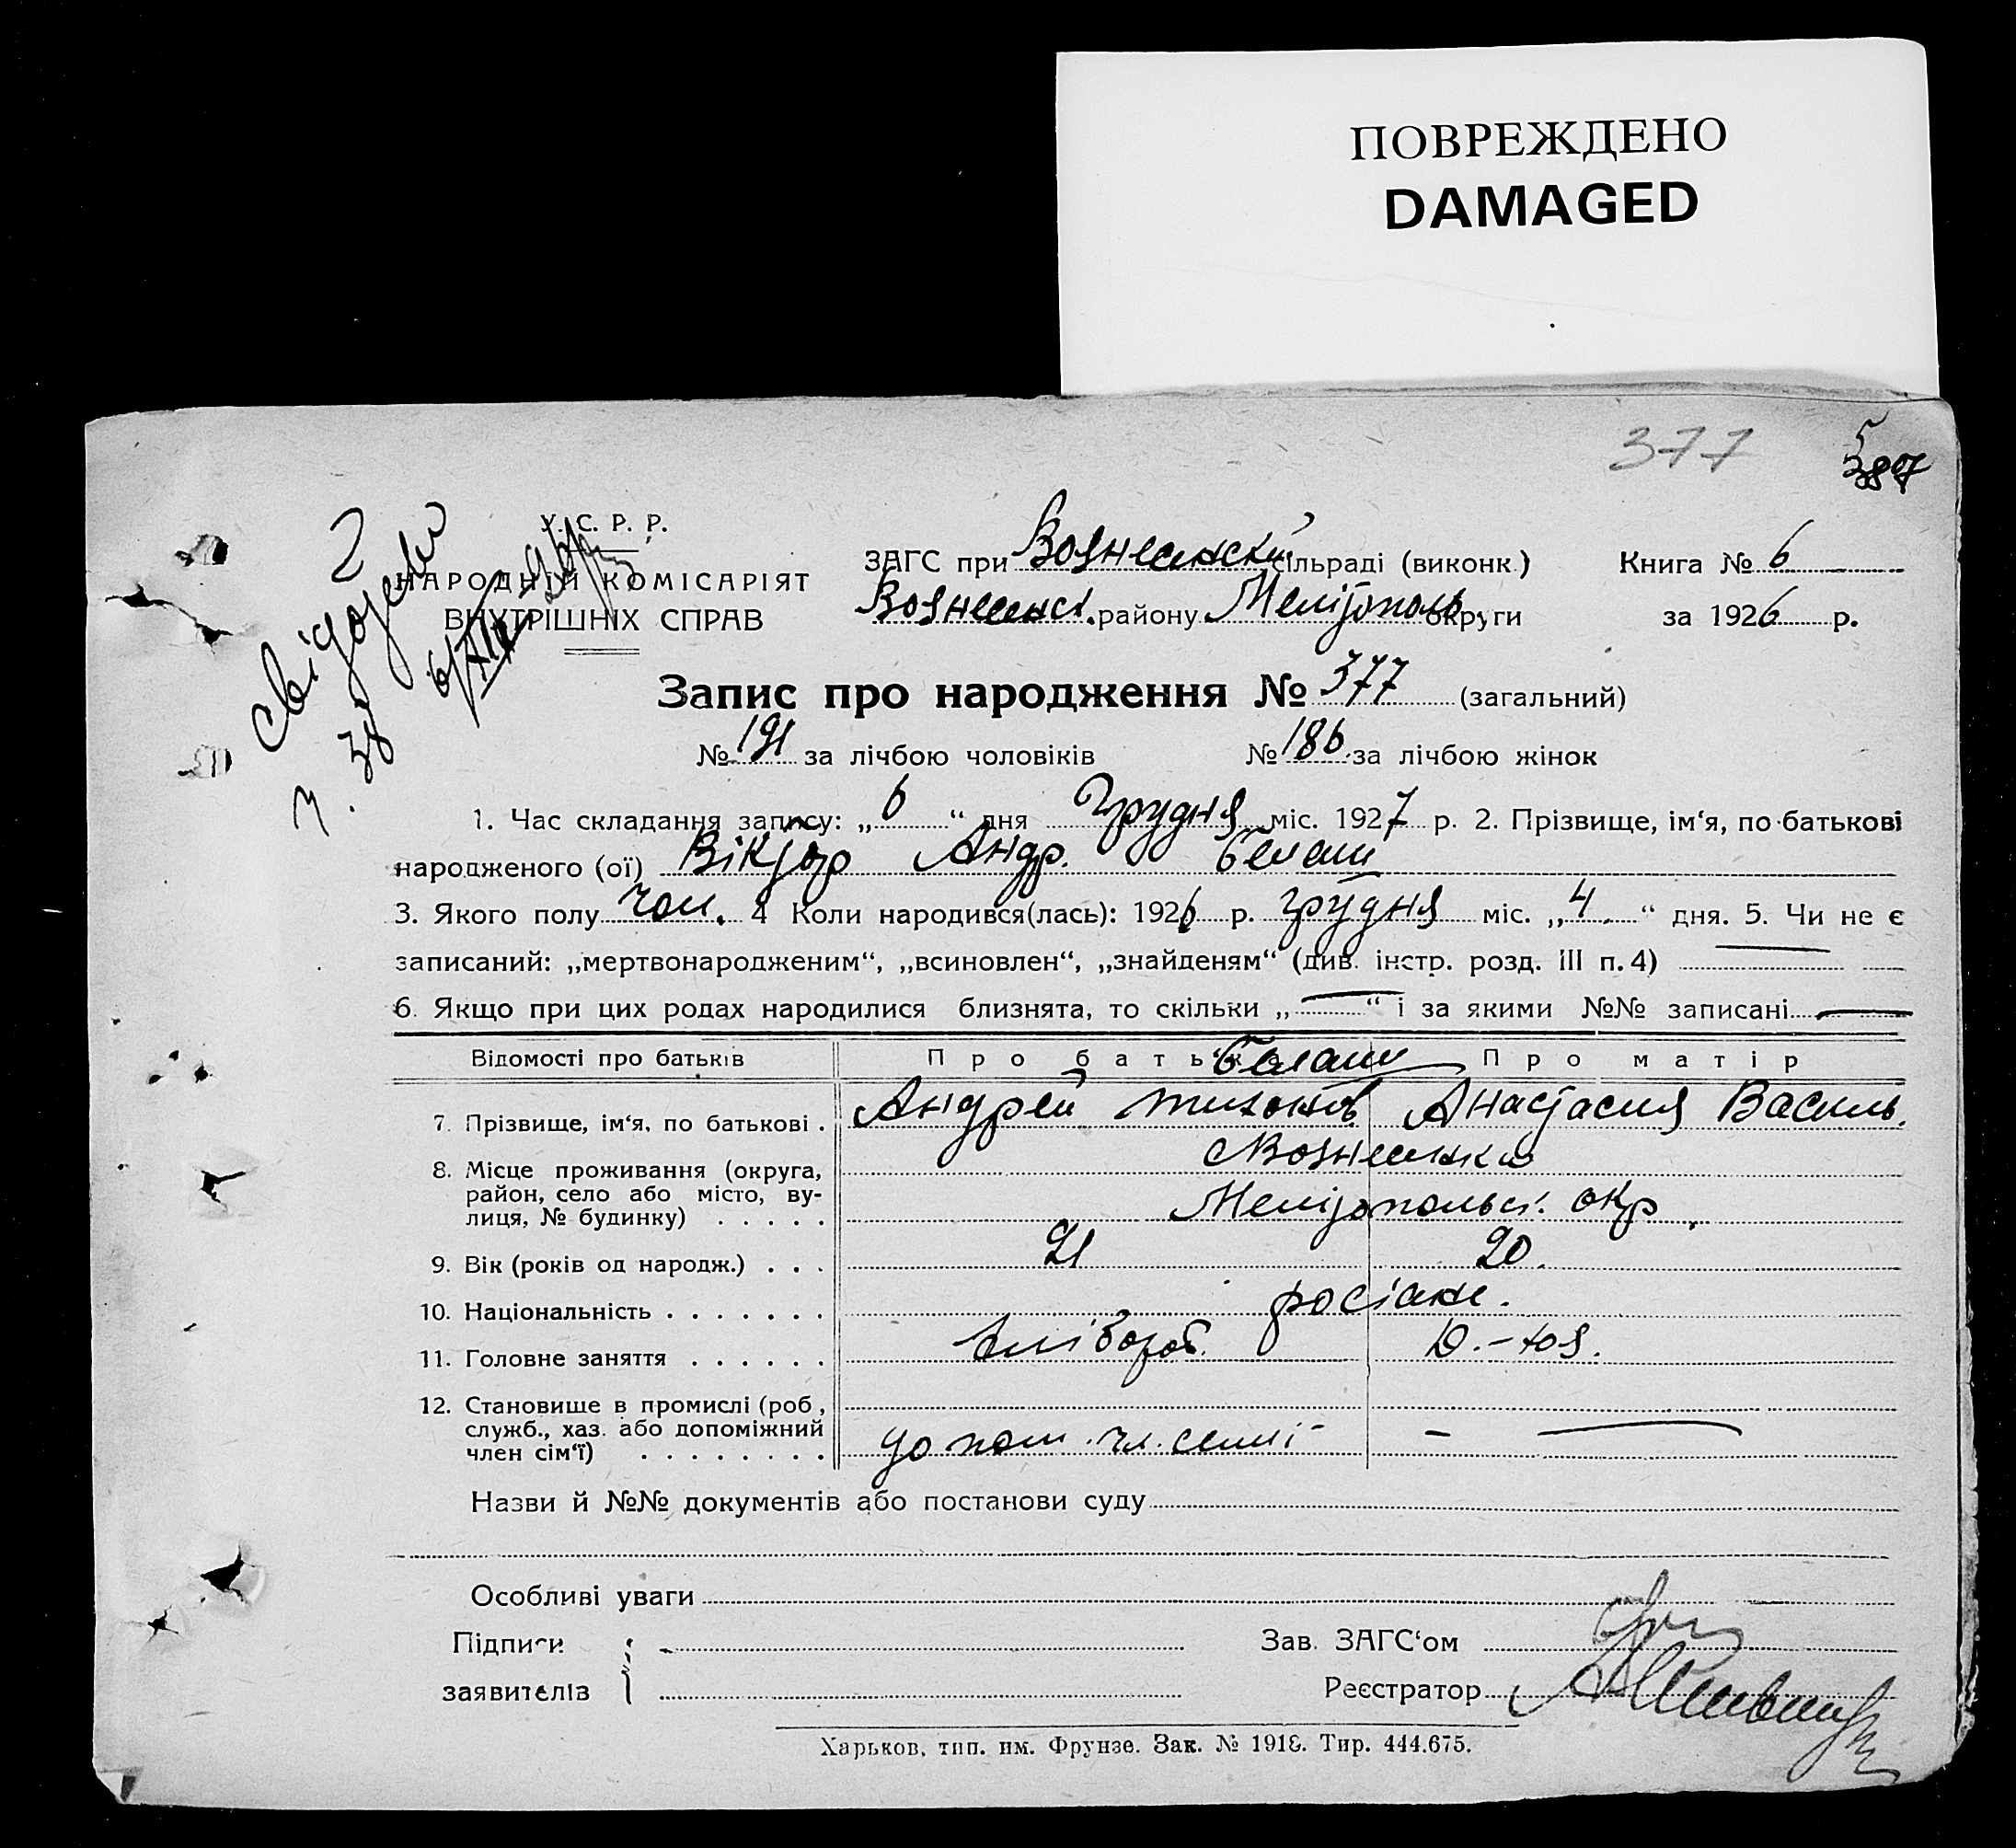 ПОВРЕЖДЕНО
DAMAGED
377
587
2
свідоцтво
ч. 38
6/XII
У. С. Р. Р.
НАРОДНІЙ КОМІСАРІЯТ
ВНУТРІШНІХ СПРАВ
ЗАГС при Вознесенскій сільраді (виконк.) Книга № 6
Вознесенск. району Мелітополь. округи за 1926 р.
Запис про народження № 377 (загальний)
№ 191 за лічбою чоловіків № 186 за лічбою жінок
1. Час складання запису: „ 6 “ дня Грудня міс. 1927 р. 2. Прізвище, ім‘я, по батькові
народженого (ої) Віктор Андр. Белаш
3. Якого полу чол. 4 Коли народився(лась): 1926 р. грудня міс. „ 4. “ дня. 5. Чи не є
записаний: „мертвонародженим“, „всиновлен“, „знайденям“ (див. інстр. розд. III п. 4) —
6. Якщо при цих родах народилися близнята, то скільки „ — “ і за якими №№ записані —
Відомості про батьків Про батька Белаш Про матір
7. Прізвище, ім‘я, по батькові . Андрей Тихонов. Анастасия Василь.
8. Місце проживання (округа, Вознесенка
район, село або місто, ву-
лиця, № будинку) . . . . . Мелітопольск. окр.
9. Вік (років од народж.) . . . 21 20.
10. Національність . . . . . . . росіяне.
11. Головне заняття . . . . . . хлібороб. Д.-хоз.
12. Становище в промислі (роб.,
служб., хаз. або допоміжний
член сім‘ї) . . . . . . . . допом. чл. семʼі - —
Назви й №№ документів або постанови суду
Особливі уваги
Підписи Зав. ЗАГС‘ом
заявителів Реєстратор
Харьков, тип. им. Фрунзе. Зак. № 1918. Тир. 444.675.